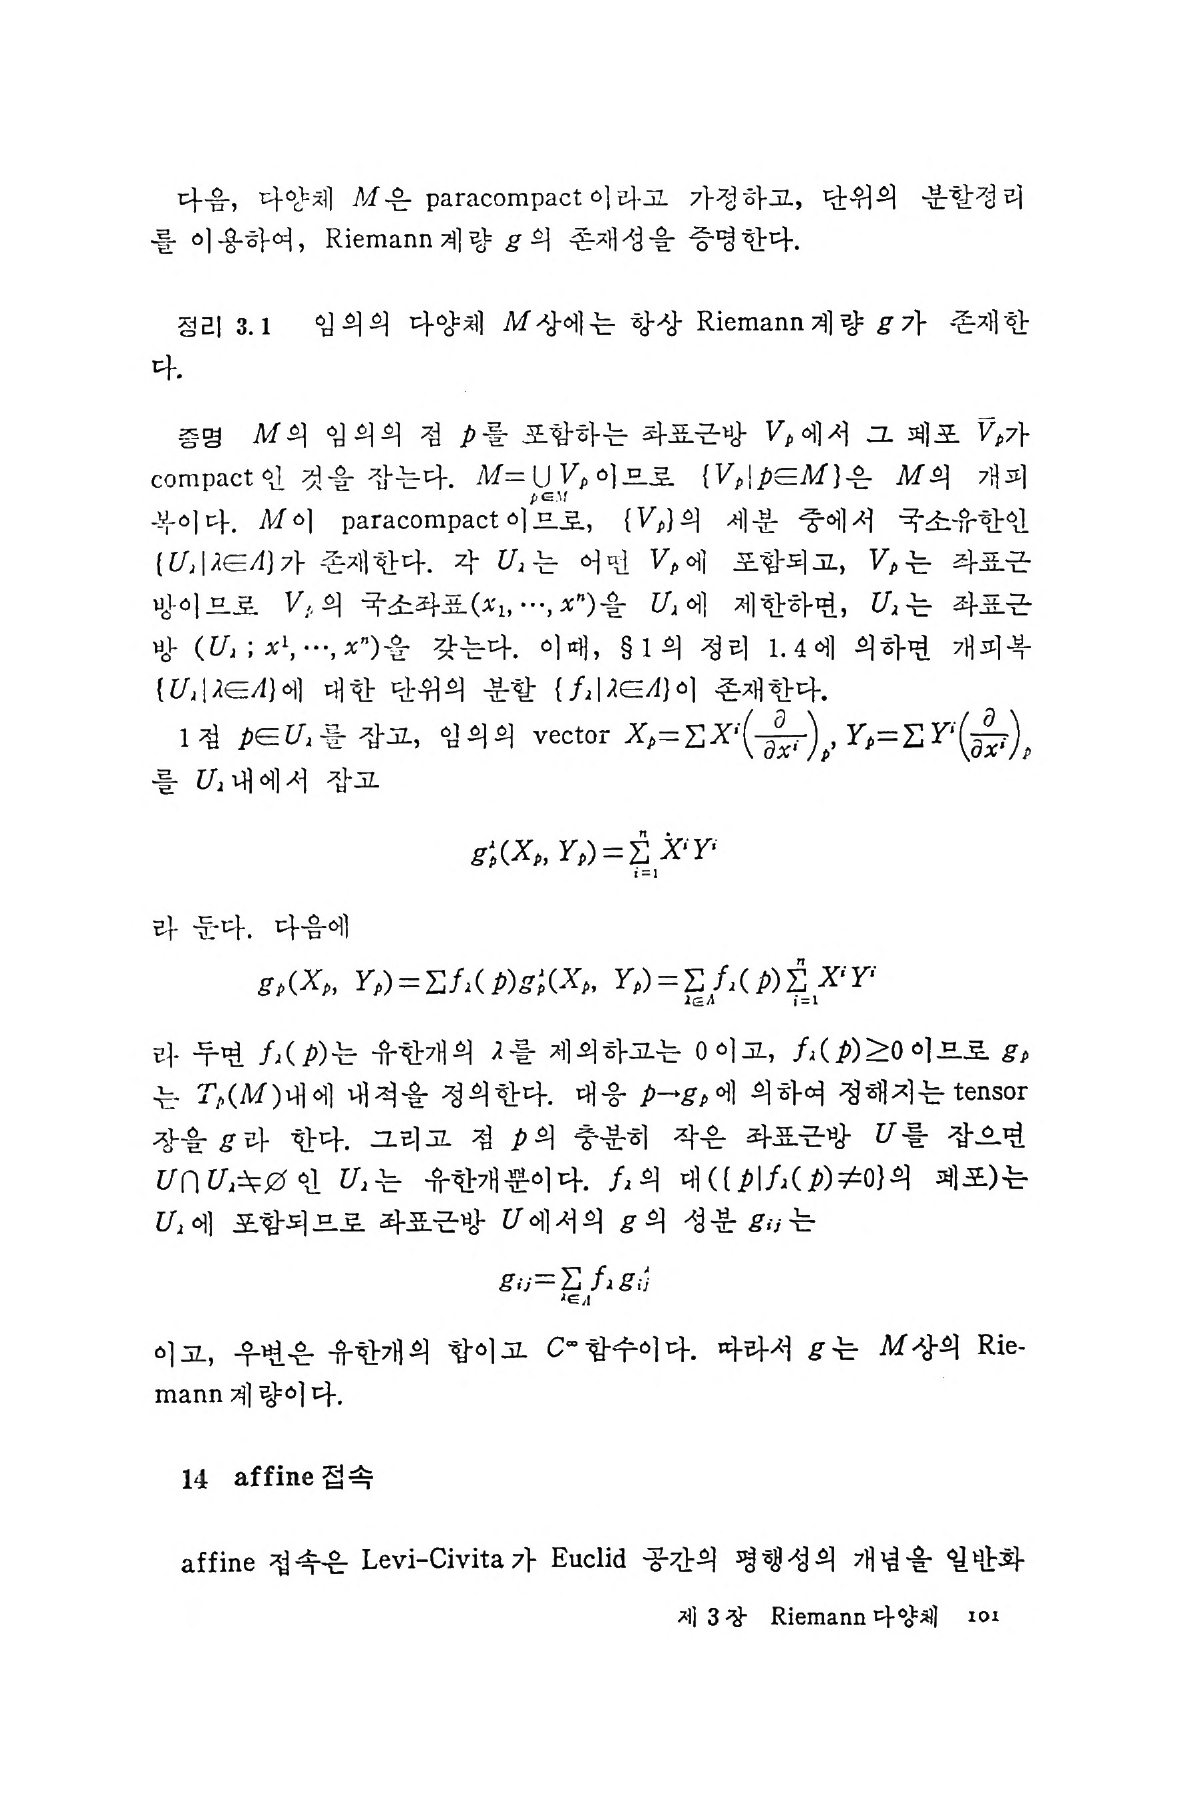 다음, 다양체 M은 paracompact이라고 가정하고, 단위의 분할정리
를 이용하여, Riemann계량 g의 존재성을 증명한다.
정리 3.1 임의의 다양체 M상에는 항상 Riemann계량 g가 존재한
다.
증명 M의 임의의 점 p를 포함하는 좌표근방 Vₚ에서 그 폐포 V̅ₚ가
compact인 것을 잡는다. M=∪_{p∈M} Vₚ이므로 {Vₚ|p∈M}은 M의 개피
복이다. M이 paracompact이므로, {Vₚ}의 세분 중에서 국소유한인
{U_λ|λ∈Λ}가 존재한다. 각 U_λ는 어떤 Vₚ에 포함되고, Vₚ는 좌표근
방이므로 Vₚ의 국소좌표(x₁, ···, xⁿ)을 U_λ에 제한하면, U_λ는 좌표근
방 (U_λ ; x¹, ···, xⁿ)을 갖는다. 이때, §1의 정리 1.4에 의하면 개피복
{U_λ|λ∈Λ}에 대한 단위의 분할 {f_λ|λ∈Λ}이 존재한다.
1점 p∈U_λ를 잡고, 임의의 vector Xₚ=∑Xⁱ(∂/∂xⁱ)ₚ, Yₚ=∑Yⁱ(∂/∂xⁱ)ₚ
를 U_λ내에서 잡고
g^λ_p(Xₚ, Yₚ)=∑_{i=1}^{n} XⁱYⁱ
라 둔다. 다음에
gₚ(Xₚ, Yₚ)=∑f_λ(p)g^λ_p(Xₚ, Yₚ)=∑_{λ∈Λ} f_λ(p)∑_{i=1}^{n} XⁱYⁱ
라 두면 f_λ(p)는 유한개의 λ를 제외하고는 0이고, f_λ(p)≥0이므로 gₚ
는 Tₚ(M)내에 내적을 정의한다. 대응 p→gₚ에 의하여 정해지는 tensor
장을 g라 한다. 그리고 점 p의 충분히 작은 좌표근방 U를 잡으면
U∩U_λ≠∅인 U_λ는 유한개뿐이다. f_λ의 대({p|f_λ(p)≠0}의 폐포)는
U_λ에 포함되므로 좌표근방 U에서의 g의 성분 g_{ij}는
g_{ij}=∑_{λ∈Λ} f_λ g^λ_{ij}
이고, 우변은 유한개의 합이고 C^∞함수이다. 따라서 g는 M상의 Rie-
mann계량이다.
14 affine접속
affine 접속은 Levi-Civita가 Euclid 공간의 평행성의 개념을 일반화
제 3 장 Riemann다양체 101